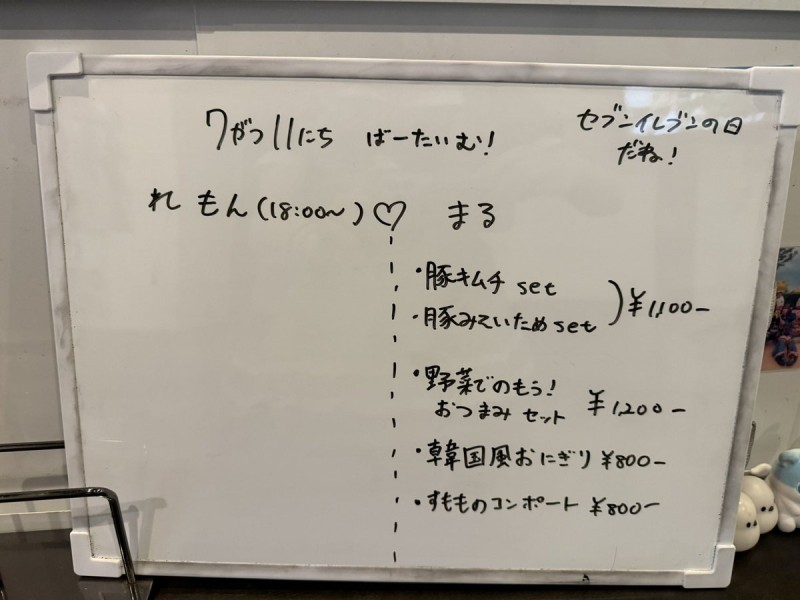 7がつ11にち ばーたいむ!
セブンイレブンの日
だね!
れもん(18:00〜)♡ まる
・豚キムチ set
・豚みそいため set
)¥1,100-
・野菜でのもう!
おつまみ セット ¥1,200-
・韓国風おにぎり ¥800-
・すもものコンポート ¥800-